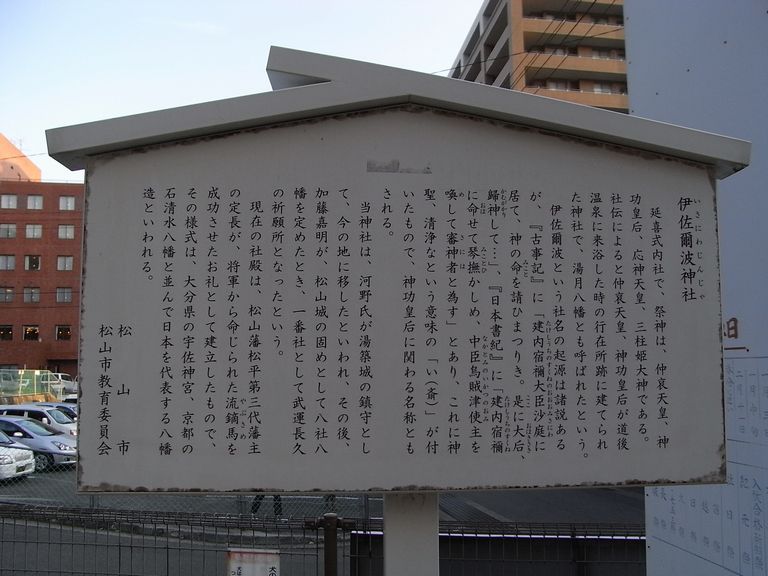 いさにわじんじゃ
伊佐爾波神社
延喜式内社で、祭神は、仲哀天皇、神
功皇后、応神天皇、三柱姫大神である。
社伝によると仲哀天皇、神功皇后が道後
温泉に来浴した時の行在所跡に建てられ
た神社で、湯月八幡とも呼ばれたという。
伊佐爾波という社名の起源は諸説ある
が、『古事記』に「建内宿禰大臣沙庭に
居て、神の命を請ひまつりき。是に大后、
歸神して…」『日本書紀』に「建内宿禰
に命せて琴撫かしめ、中臣烏賊津使主を
喚して審神者と為す」とあり、これに神
聖、清浄なという意味の「い(斎)」が付
いたもので、神功皇后に関わる名称とも
される。
当神社は、河野氏が湯築城の鎮守とし
て、今の地に移したといわれ、その後、
加藤嘉明が、松山城の固めとして八社八
幡を定めたとき、一番社として武運長久
の祈願所となったという。
現在の社殿は、松山藩松平第三代藩主
の定長が、将軍から命じられた流鏑馬を
成功させたお礼として建立したもので、
その様式は、大分県の宇佐神宮、京都の
石清水八幡と並んで日本を代表する八幡
造といわれる。
松山市
松山市教育委員会